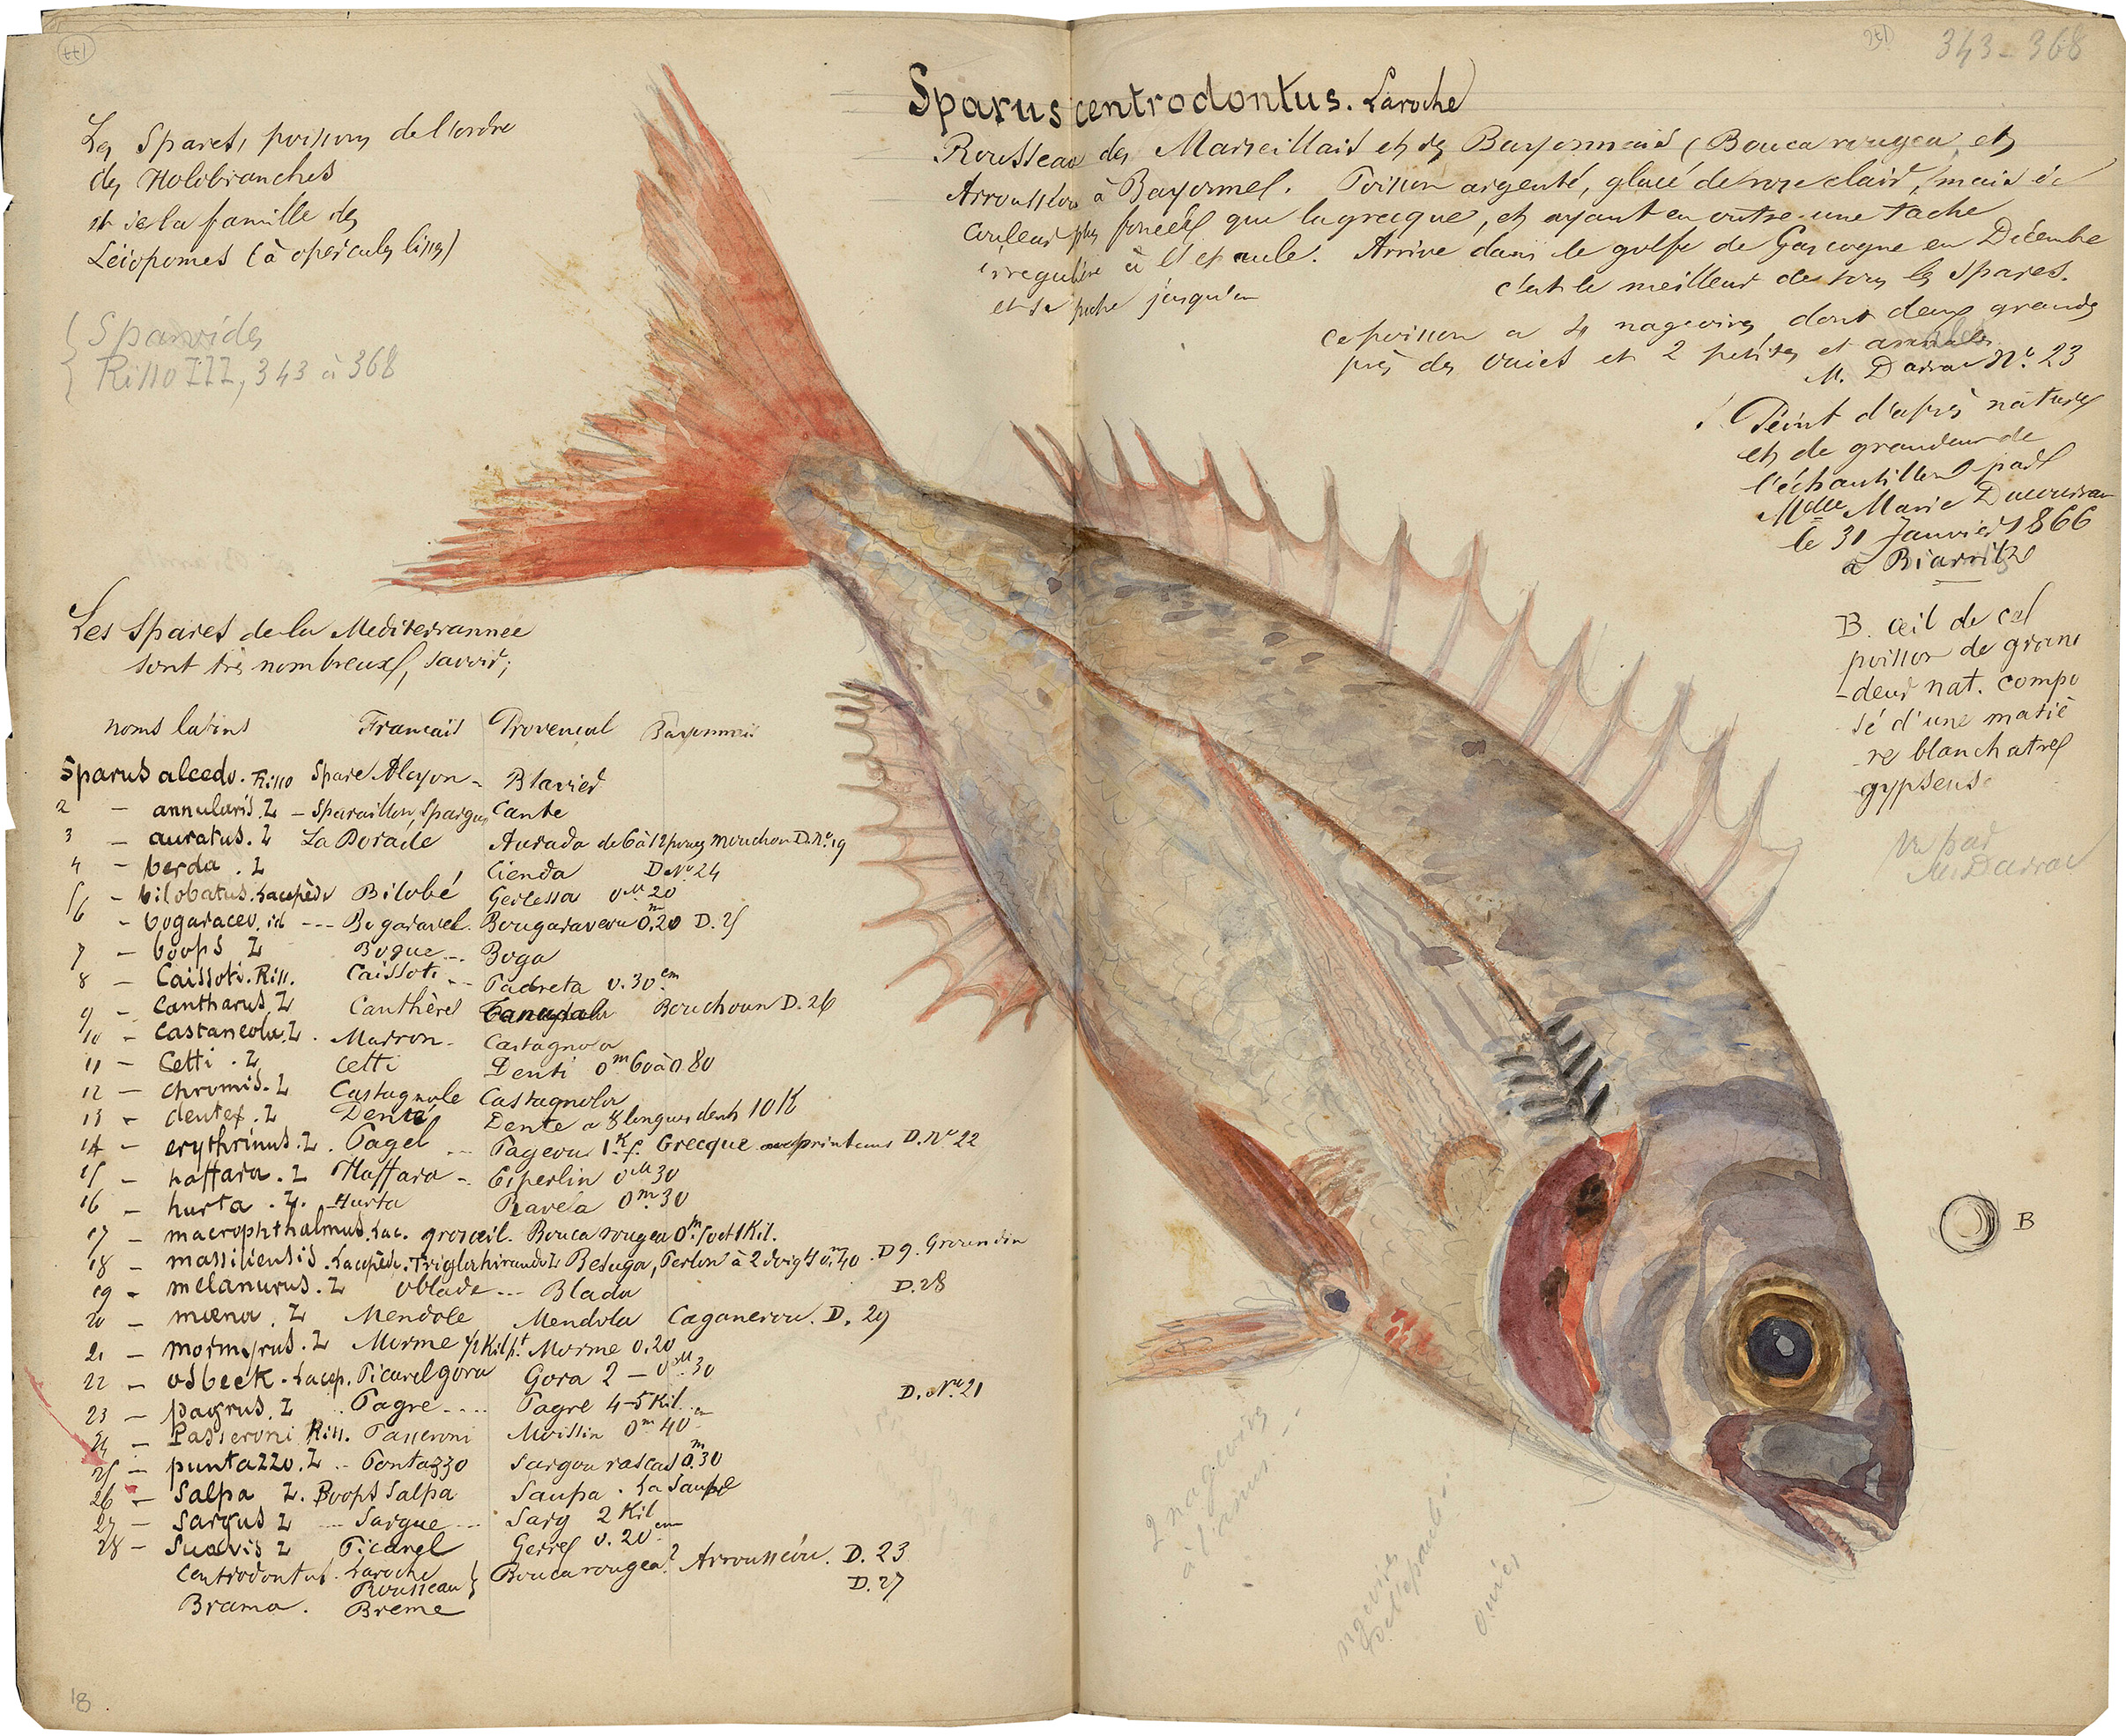 Les Spares, poissons de l'ordre
des Holobranches
et de la famille des
Leiopomes (à opercules lisses)
Sparoides
Risso III, 343 à 368
Les Spares de la Mediterrannee
sont très nombreux, savoir;
noms latins Francais Provençal Bayonnais
Sparus alcedo. Risso Spare Alcyon - Blavier
2 - annularis. L - Sparaillon, Spargus Cante
3 - auratus. L La Dorade Aurada de 6 à 12 pouces mouchon D. No. 19
4 - berda. L Cienda D No 24
5 - bilobatus. Lacepède Bilobé Gerlessa 0M 20
6 - bogaraceo. id --- Bogaravel. Bougaraveou 0,m20 D. 25
7 - boops L Bogue -.. Boga
8 - Caissoti. Riss. Caissoti -- Padreta 0.30cm
9 - Cantharus. L Canthère Bouchoun D. 26
10 - Castaneola. L. Marron - Castagnola
11 - Cetti. L Cetti Denti 0m 60 à 0 80
12 - chromis. L Castagnole Castagnola
13 - dentex. L Denté Dente a 8 longues dents 10 K
14 - erythrinus. L. Pagel -- Pageou 1K f. Grecque printems D. No 22
15 - haffara. L Haffara - Eiperlin 0M 30
16 - hurta. L. Hurta Ravela 0m. 30
17 - macrophthalmus. Lac. gros oeil. Bouca rougea 0m. 50 et 1 Kil.
18 - massiliensis. Lacepède. Trigla hirundo L Beluga, Perlon à 2 doigts 0.m40. D 9. Grroundin
19 - melanurus. L Oblade --- Blada D. 28
20 - mæna. L Mendole Mendola Caganerou. D. 29
21 - mormyrus. L Morme 1/2 Kil pt. Morme 0.20
22 - osbeck. Lacep. Picarel gora Gora 2 - 0M. 30
23 - pagrus. L Pagre .... Pagre 4-5 Kil. D. No 21
24 - Passeroni Riss. Passeroni Moissin 0m 40
25 - puntazzo. L .. Pontazzo Sargou rascas 0m.30
26 - Salpa L. Boops Salpa Saupa. La Saupe
27 - Sargus L --- Sargue --- Sarg 2 Kil
28 - Suavis L Picarel Gerres 0.20cm
Centrodontus. Laroche Rousseau } Bouca rougea? Arrousséou. D. 23
Brama. Breme D. 27
18
343-368
Sparus centrodontus. Laroche
Rousseau des Marseillais et des Bayonnais (Bouca rougea et
Arrousséou à Bayonne). Poisson argenté, glacé de rose clair, mais de
couleur plus foncée que la grecque, et ayant en outre une tache
irregulière à l'epaule. Arrive dans le golfe de Gascogne en Décembre
et se peche jusqu'en c'est le meilleur de tous les Spares.
ce poisson a 4 nageoires, dont deux grandes
près des ouies et 2 petites et anales
M. Darrac No. 23
Peint d'après nature
et de grandeur de
l'échantillon par
Melle Marie Ducourrau
le 31 Janvier 1866
a Biarritz
B. œil de ce
poisson de gran
-deur nat. compo
sé d'une matiè
re blanchatre
gypseuse
Vu par
M. Darrac
B
2 nageoires
à l'anus
nageoire
de l'épaule
Ouies